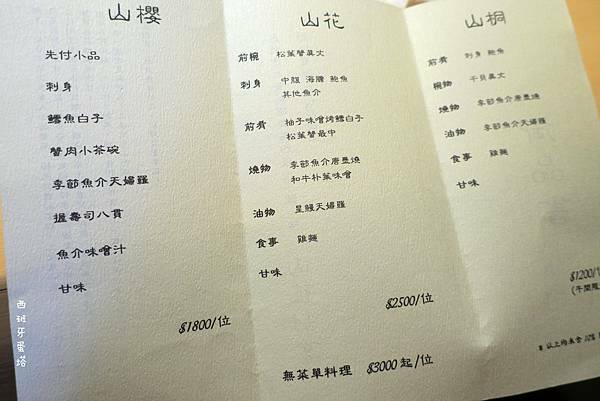 山櫻
先付小品
刺身
鱈魚白子
蟹肉小茶碗
季節魚介天婦羅
握壽司八貫
魚介味噌汁
甘味
$1800/位
山花
前椀 松葉蟹真丈
刺身 中腹 海膽 鮑魚
其他魚介
前肴 柚子味噌烤鱈白子
松葉蟹最中
燒物 季節魚介唐墨燒
和牛朴葉味噌
油物 星鰻天婦羅
食事 雞麵
甘味
$2500/位
無菜單料理 $3000起/位
山桐
前肴 刺身 鮑魚
椀物 干貝真丈
燒物 季節魚介唐墨燒
油物 季節魚介天婦羅
食事 雞麵
甘味
$1200/
(午間限
以上均未含 10%
西班牙蛋塔